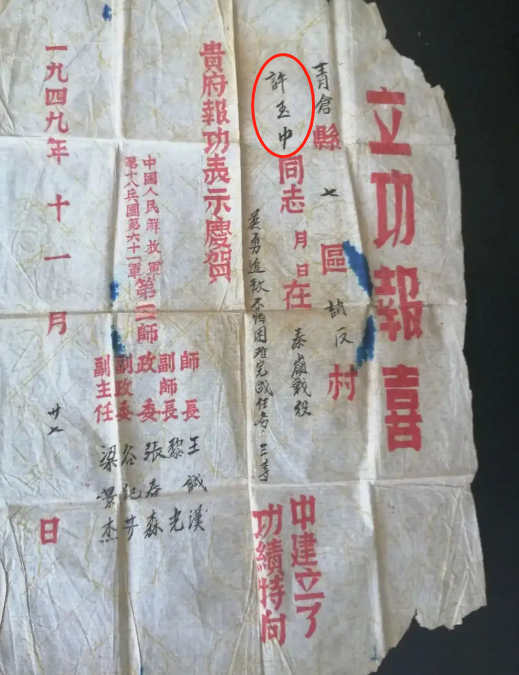 立功報喜
青倉縣七區趙段村
許玉中同志 月 日在秦嶺戰役
中建立了
英勇追敌不怕困难完成任务 三等
功績特向
貴府報功表示慶賀
中國人民解放軍
第十八兵團第六十一軍
第 師
師長 王誠漢
副師長 黎光
政委 張春森
副政委 谷
副主任 梁景杰
一九四九年十一月廿七日